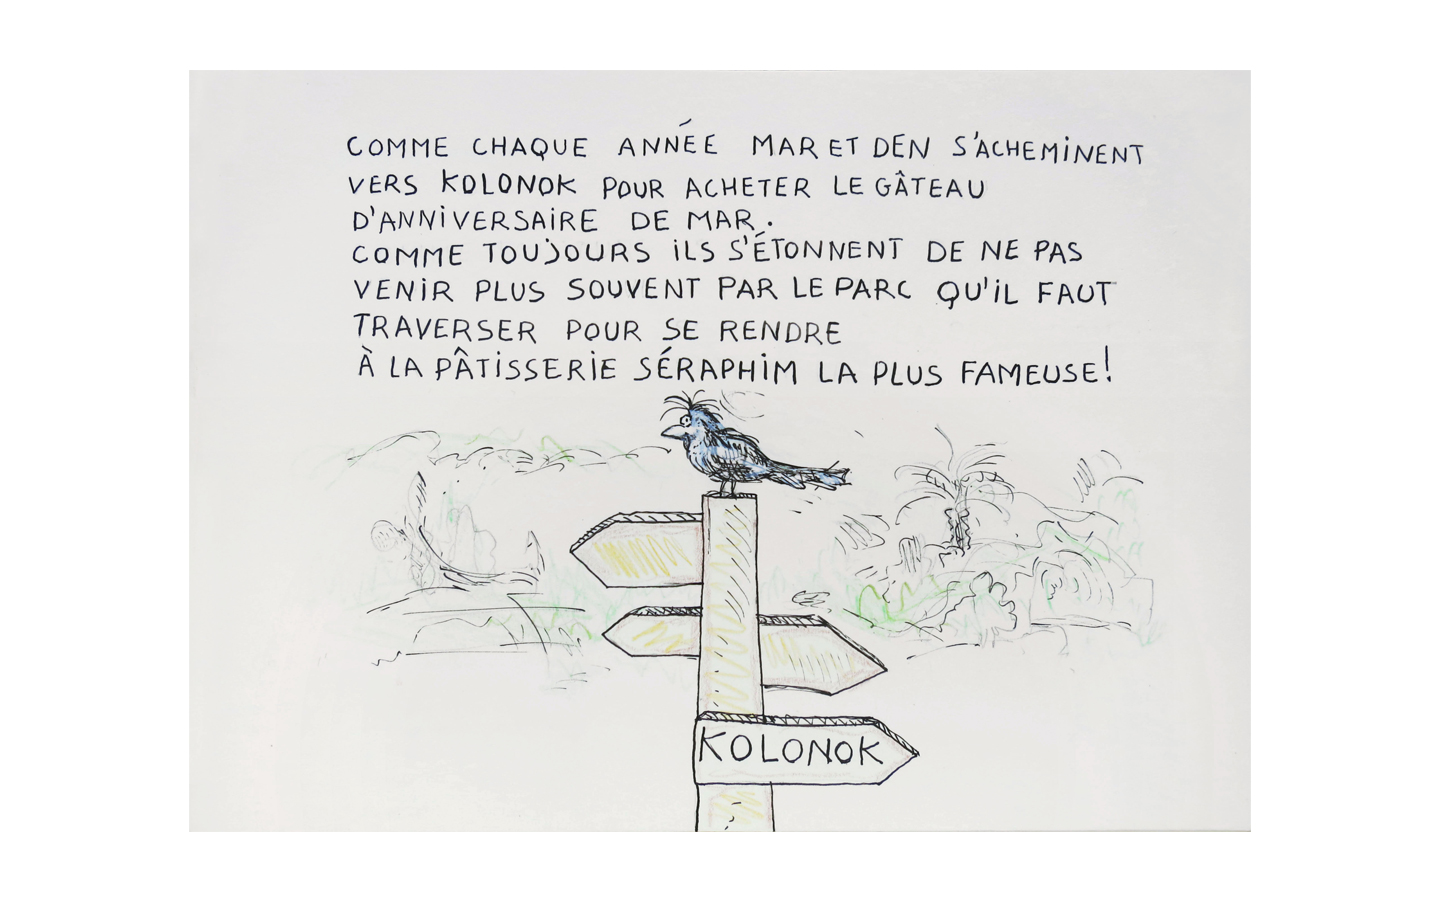 COMME CHAQUE ANNÉE MAR ET DEN S'ACHEMINENT
VERS KOLONOK POUR ACHETER LE GÂTEAU
D'ANNIVERSAIRE DE MAR.
COMME TOUJOURS ILS S'ÉTONNENT DE NE PAS
VENIR PLUS SOUVENT PAR LE PARC QU'IL FAUT
TRAVERSER POUR SE RENDRE
À LA PÂTISSERIE SÉRAPHIM LA PLUS FAMEUSE!
KOLONOK